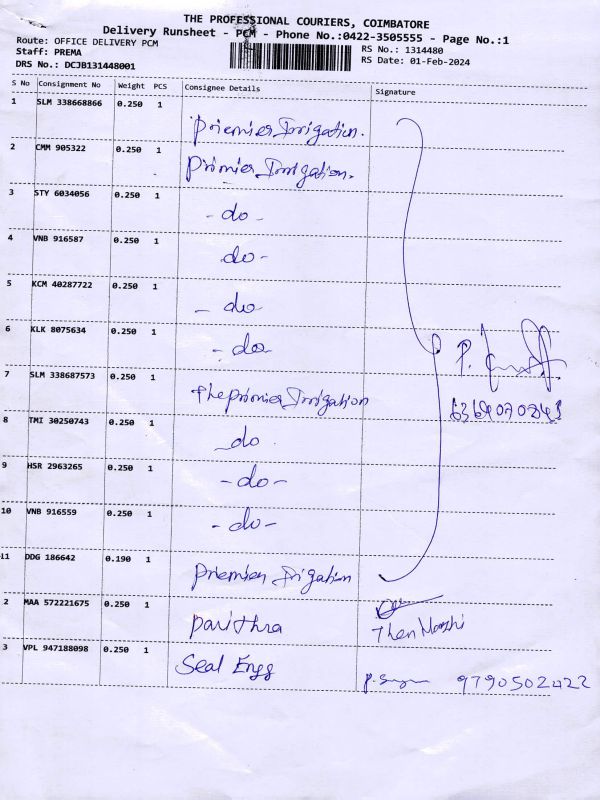 THE PROFESSIONAL COURIERS, COIMBATORE
Delivery Runsheet - PCM - Phone No.:0422-3505555 - Page No.:1
Route: OFFICE DELIVERY PCM
Staff: PREMA
DRS No.: DCJB131448001
RS No.: 1314480
RS Date: 01-Feb-2024
S No Consignment No Weight PCS Consignee Details Signature
1 SLM 338668866 0.250 1 Priemier Irrigation.
2 CMM 905322 0.250 1 Primier Irrigation.
3 STY 6034056 0.250 1 - do -
4 VNB 916587 0.250 1 do -
5 KCM 40287722 0.250 1 - do
6 KLK 8075634 0.250 1 - do
P.
7 SLM 338687573 0.250 1 The primier Irrigation
8 TMI 30250743 0.250 1 - do
9 HSR 2963265 0.250 1 - do -
10 VNB 916559 0.250 1 - do -
11 DDG 186642 0.190 1 Priemier Irigation
2 MAA 572221675 0.250 1 Pavithra
3 VPL 947188098 0.250 1 Seal Engg P. 9790502422